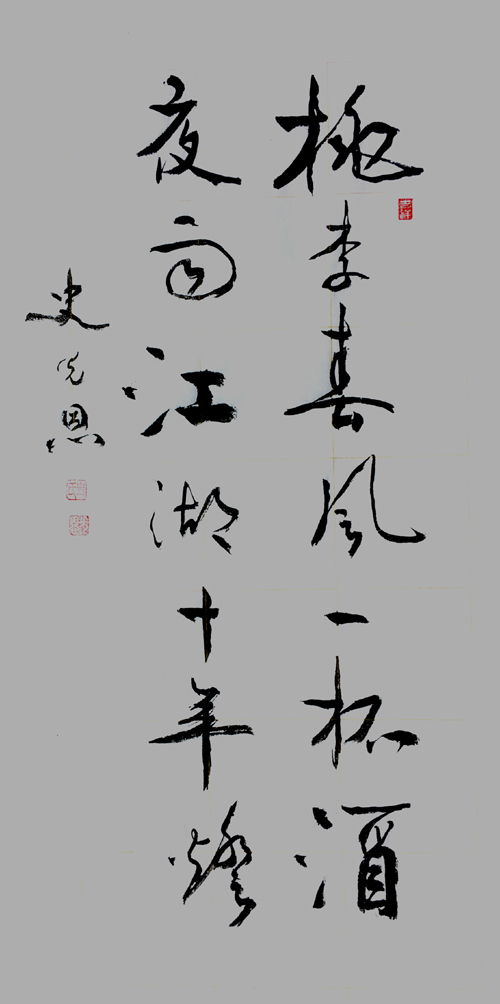 桃李春風一杯酒
夜雨江湖十年燈
史光恩